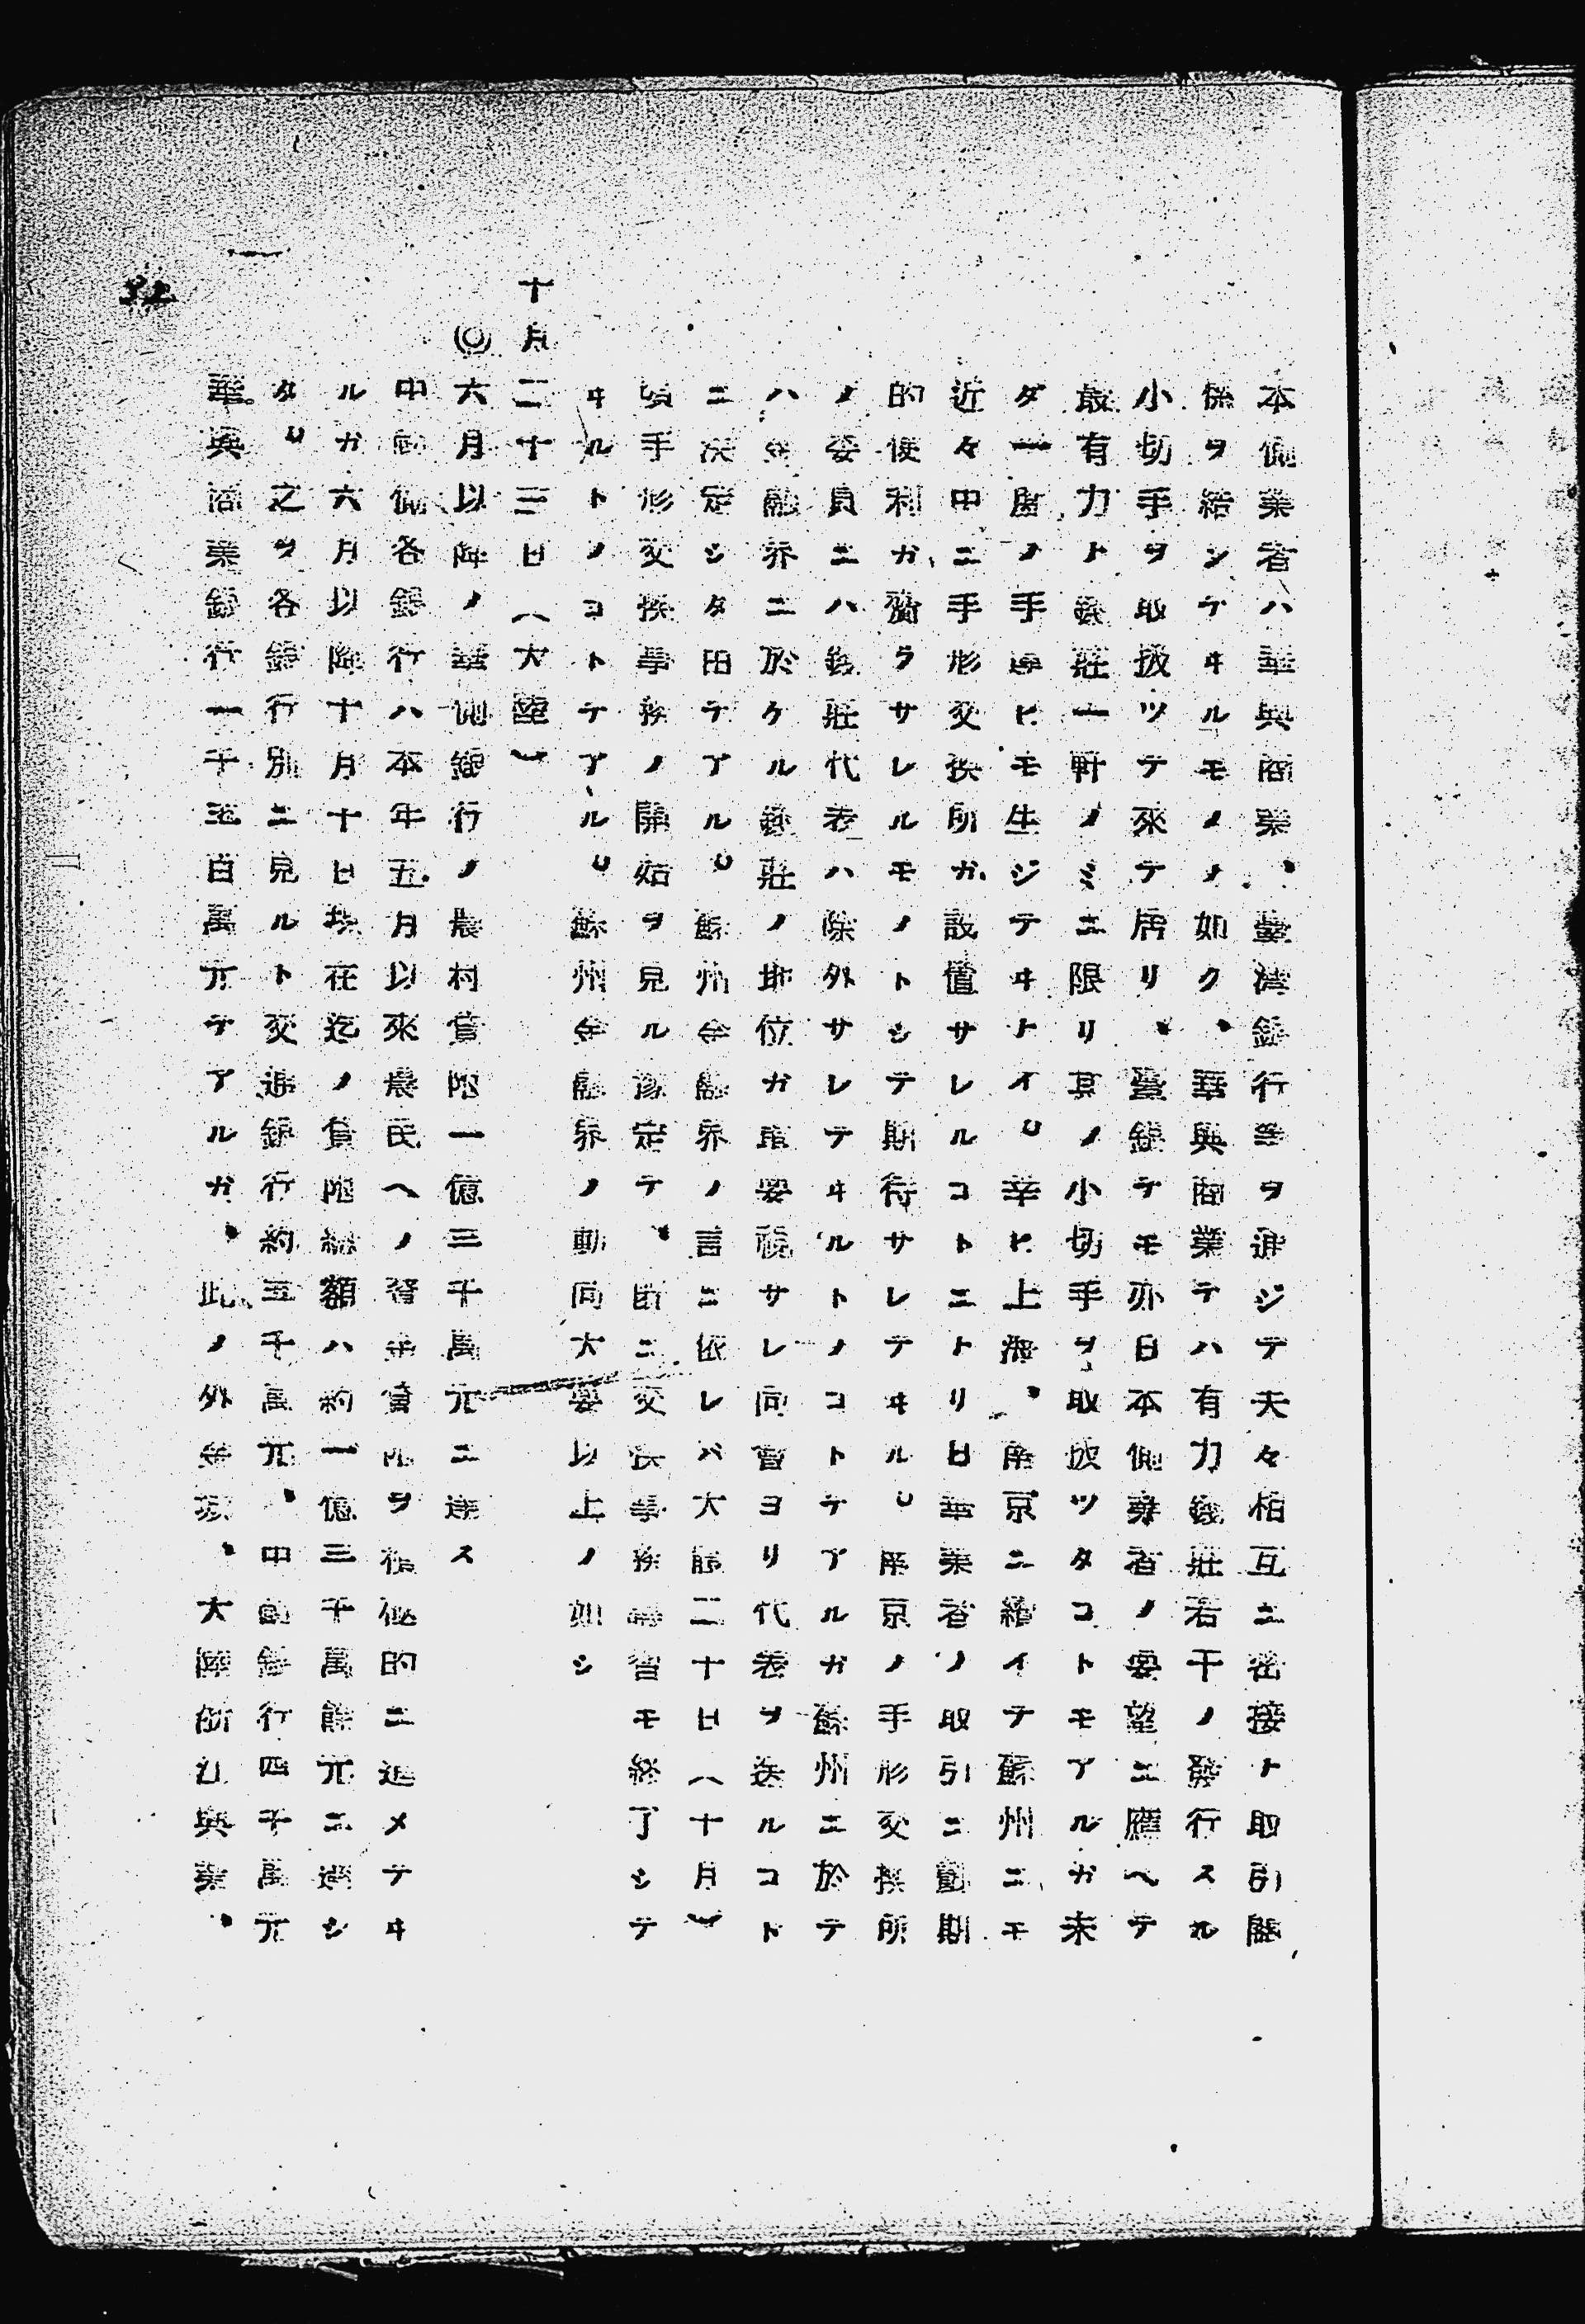 本側業者ハ華興商業、臺灣銀行等ヲ通ジテ夫々相互ニ密接ト取引關
係ヲ結ンデヰルモノノ如ク、華興商業デハ有力錢莊若干ノ發行スル
小切手ヲ取扱ツテ來テ居リ、臺銀デモ亦日本側業者ノ要望ニ應ヘテ
最有力ト錢莊一軒ノミニ限リ其ノ小切手ヲ取扱ツタコトモアルガ未
ダ一面ノ手違ヒモ生ジテヰトイ。幸ヒ上海、南京ニ繼イデ蘇州ニモ
近々中ニ手形交換所ガ設置サレルコトニトリ日華業者ノ取引ニ劃期
的便利ガ齎ラサレルモノトシテ期待サレテヰル。南京ノ手形交換所
ノ委員ニハ錢莊代表ハ除外サレテヰルトノコトデアルガ蘇州ニ於テ
ハ金融界ニ於ケル錢莊ノ地位ガ重要視サレ同會ヨリ代表ヲ送ルコト
ニ決定シタ由デアル。蘇州金融界ノ言ニ依レバ大體二十日(十月)
頃手形交換事務ノ開始ヲ見ル豫定デ、既ニ交換事務講習モ終了シテ
ヰルトノコトデアル。蘇州金融界ノ動向大要以上ノ如シ
十月二十三日(大陸)
◎六月以降ノ華側銀行ノ農村貸附一億三千萬元ニ達ス
中國側各銀行ハ本年五月以來農民ヘノ資金貸附ヲ積極的ニ進メテヰ
ルガ六月以降十月十日現在迄ノ貸附總額ハ約一億三千萬餘元ニ達シ
タ。之ヲ各銀行別ニ見ルト交通銀行約五千萬元、中國銀行四千萬元
華興商業銀行一千五百萬元デアルガ、此ノ外金城、大陸、浙江興業、
32